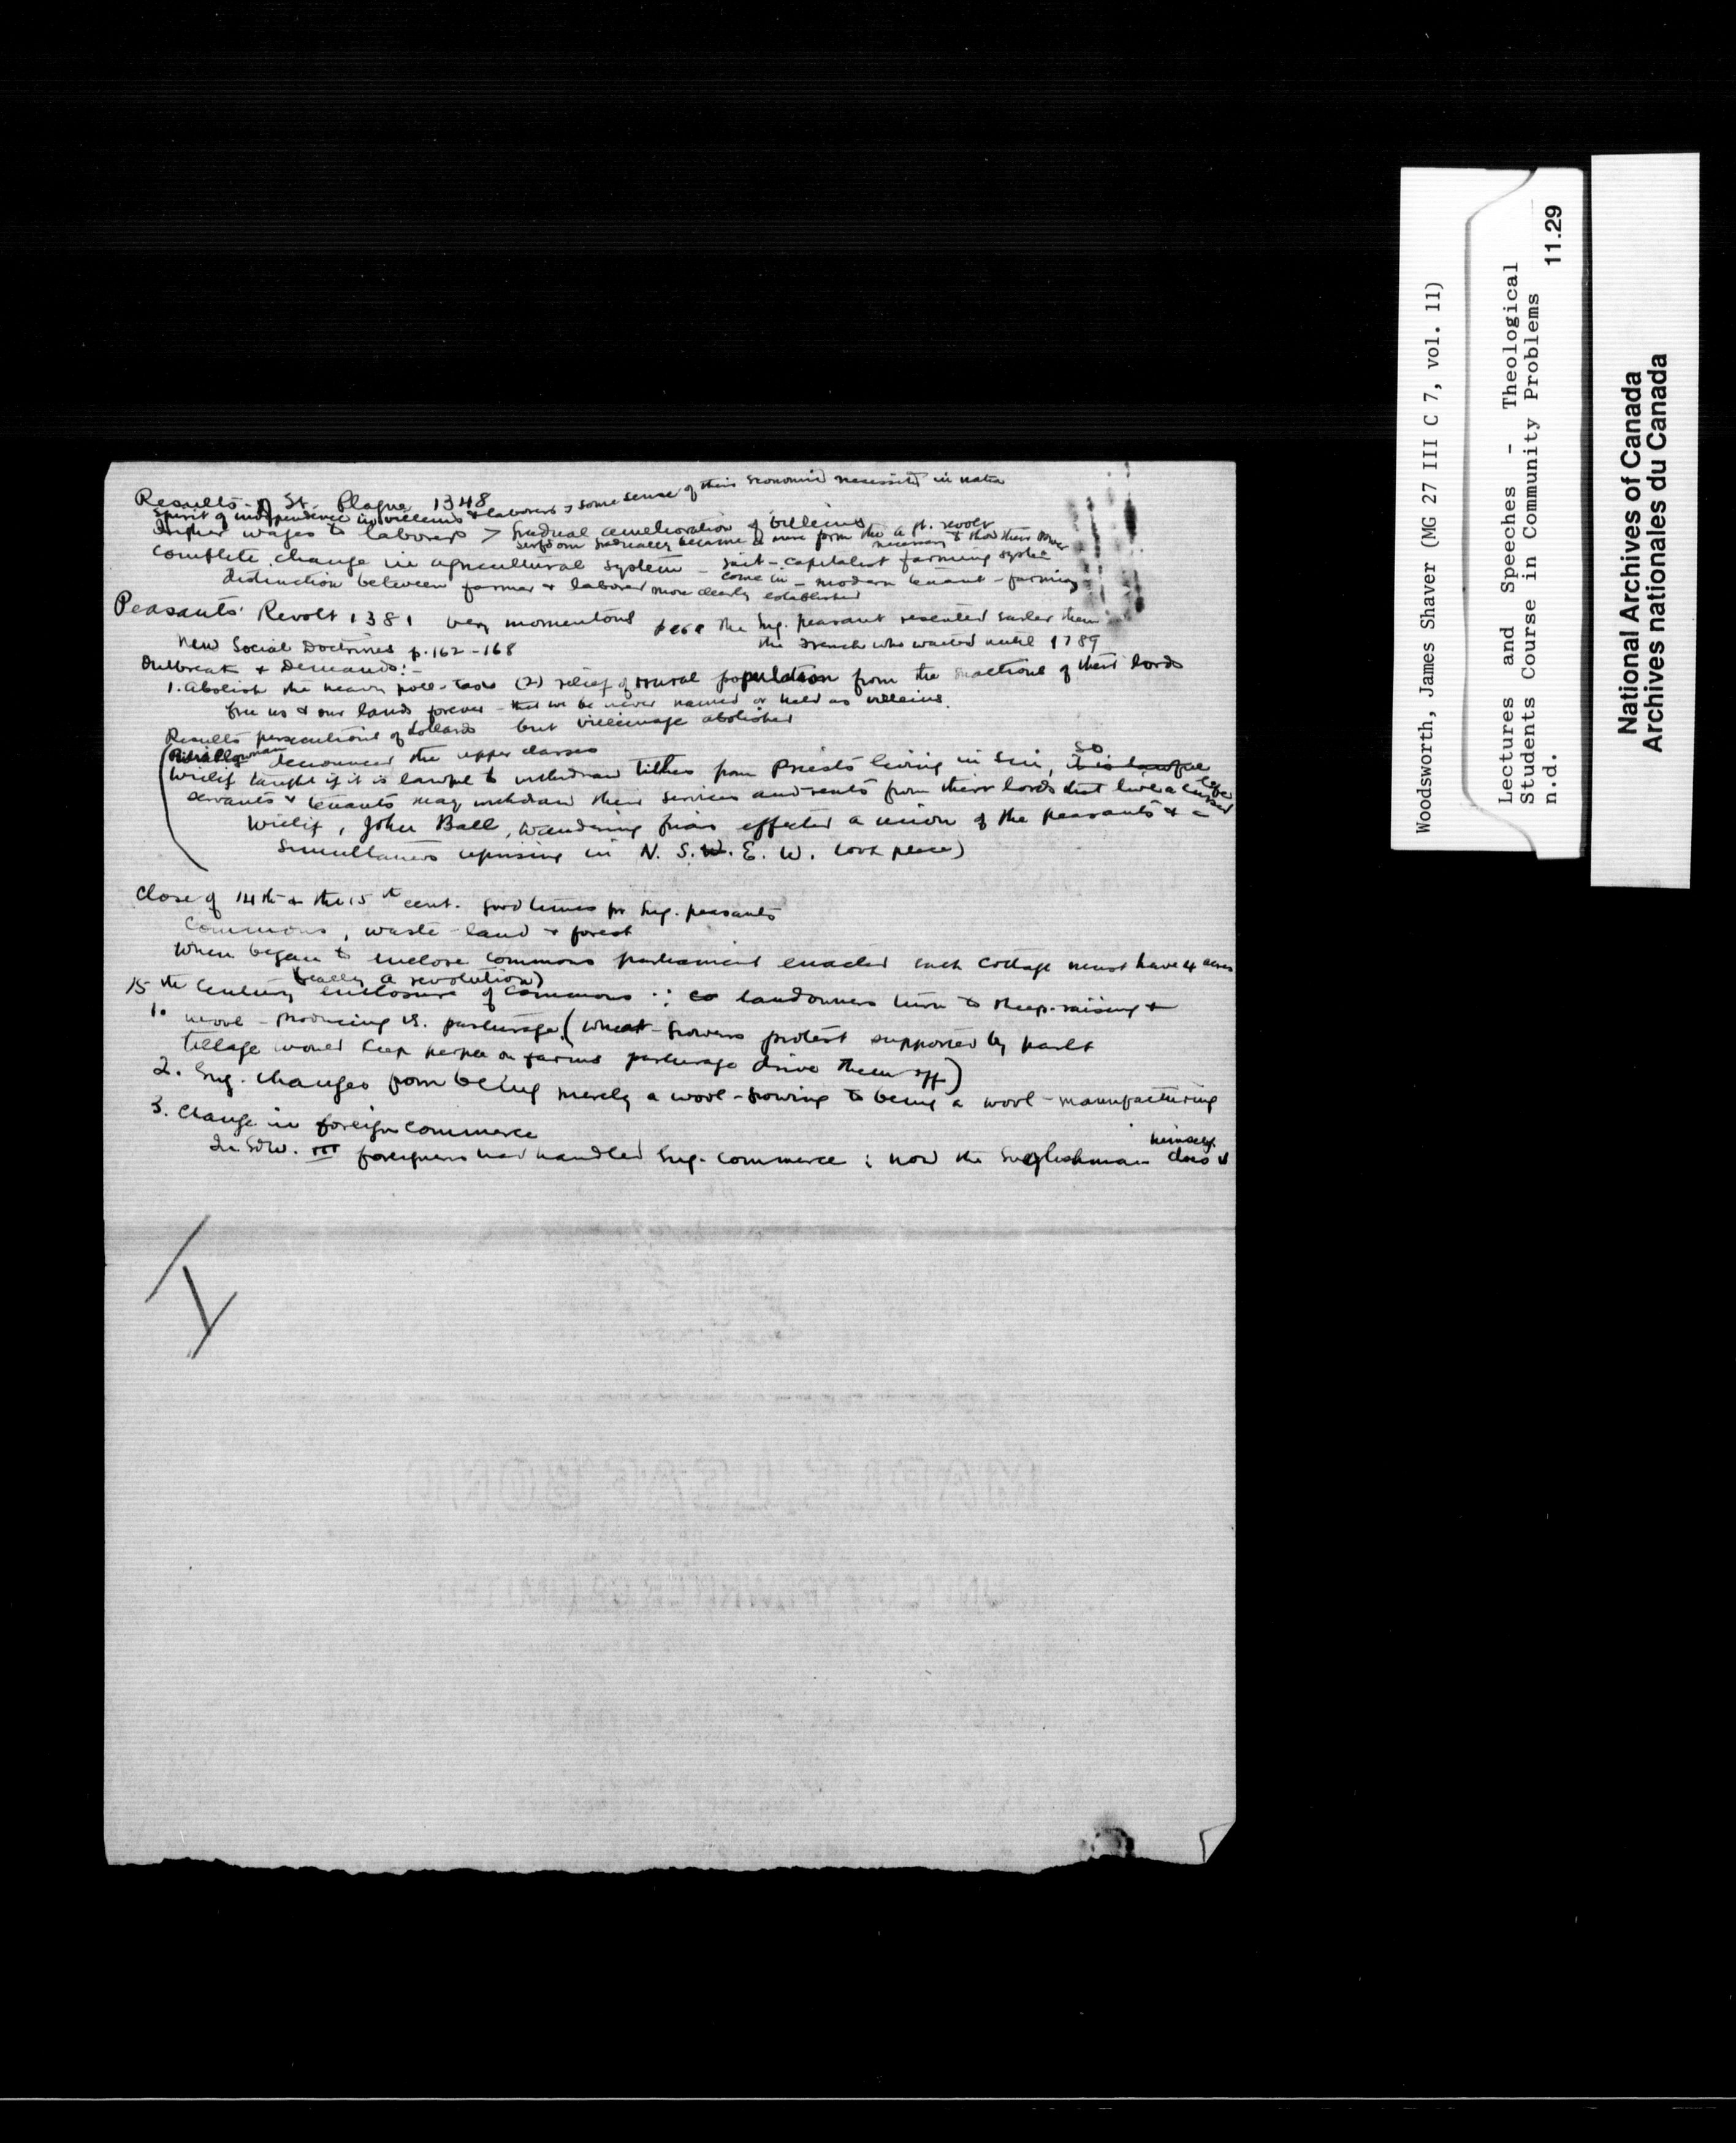 Results of Gt. Plague 1348
Spirit of independence in villeins & laborers & some sense of their economic necessity in nation
Higher wages to laborers > Gradual amelioration of villeins
Serfdom gradually became a mere form tho a pt. revolt
necessary to show their power
Complete change in agricultural system - capitalist farming system
come in - modern tenant-farming
distinction between farmer & laborer more clearly established
Peasants' Revolt 1381 very momentous the Eng. peasant resented earlier than
the French who waited until 1789
New Social Doctrines p. 162-168
Outbreak & Demands:-
1. Abolish the heavy poll-tax (2) relief of rural population from the exactions of their lords
free us & our lands forever - that we be never named or held as villeins.
Results persecutions of Lollards but villeinage abolished
denounced the upper classes
Wiclif taught if it is lawful to withdraw tithes from Priests living in sin, so it is lawful
servants & tenants may withdraw their services and rents from their lords that live a cursed life
Wiclif, John Ball, wandering friars effected a union of the peasants & a
simultaneous uprising in N. S. W. E. W. took place)
Close of 14th & the 15th cent. good times for Eng. peasants
Commons, waste-land & forest
When began to enclose commons parliament enacted each cottage must have 4 acres
(really a revolution)
15th Century enclosure of commons ∵ landowners turn to sheep-raising &
1. wool-producing vs. pasturage (wheat-growers protest supported by parlt
tillage would keep people on farms pasturage drive them off)
2. Eng. changes from being merely a wool-growing to being a wool-manufacturing
3. Change in foreign commerce
In Edw. III foreigners had handled Eng. commerce; now the Englishman does it himself.
MAPLE LEAF BOND
UNITED TYPEWRITER CO LIMITED
Woodsworth, James Shaver (MG 27 III C 7, vol. 11)
Lectures and Speeches - Theological
Students Course in Community Problems
n.d. 11.29
National Archives of Canada
Archives nationales du Canada